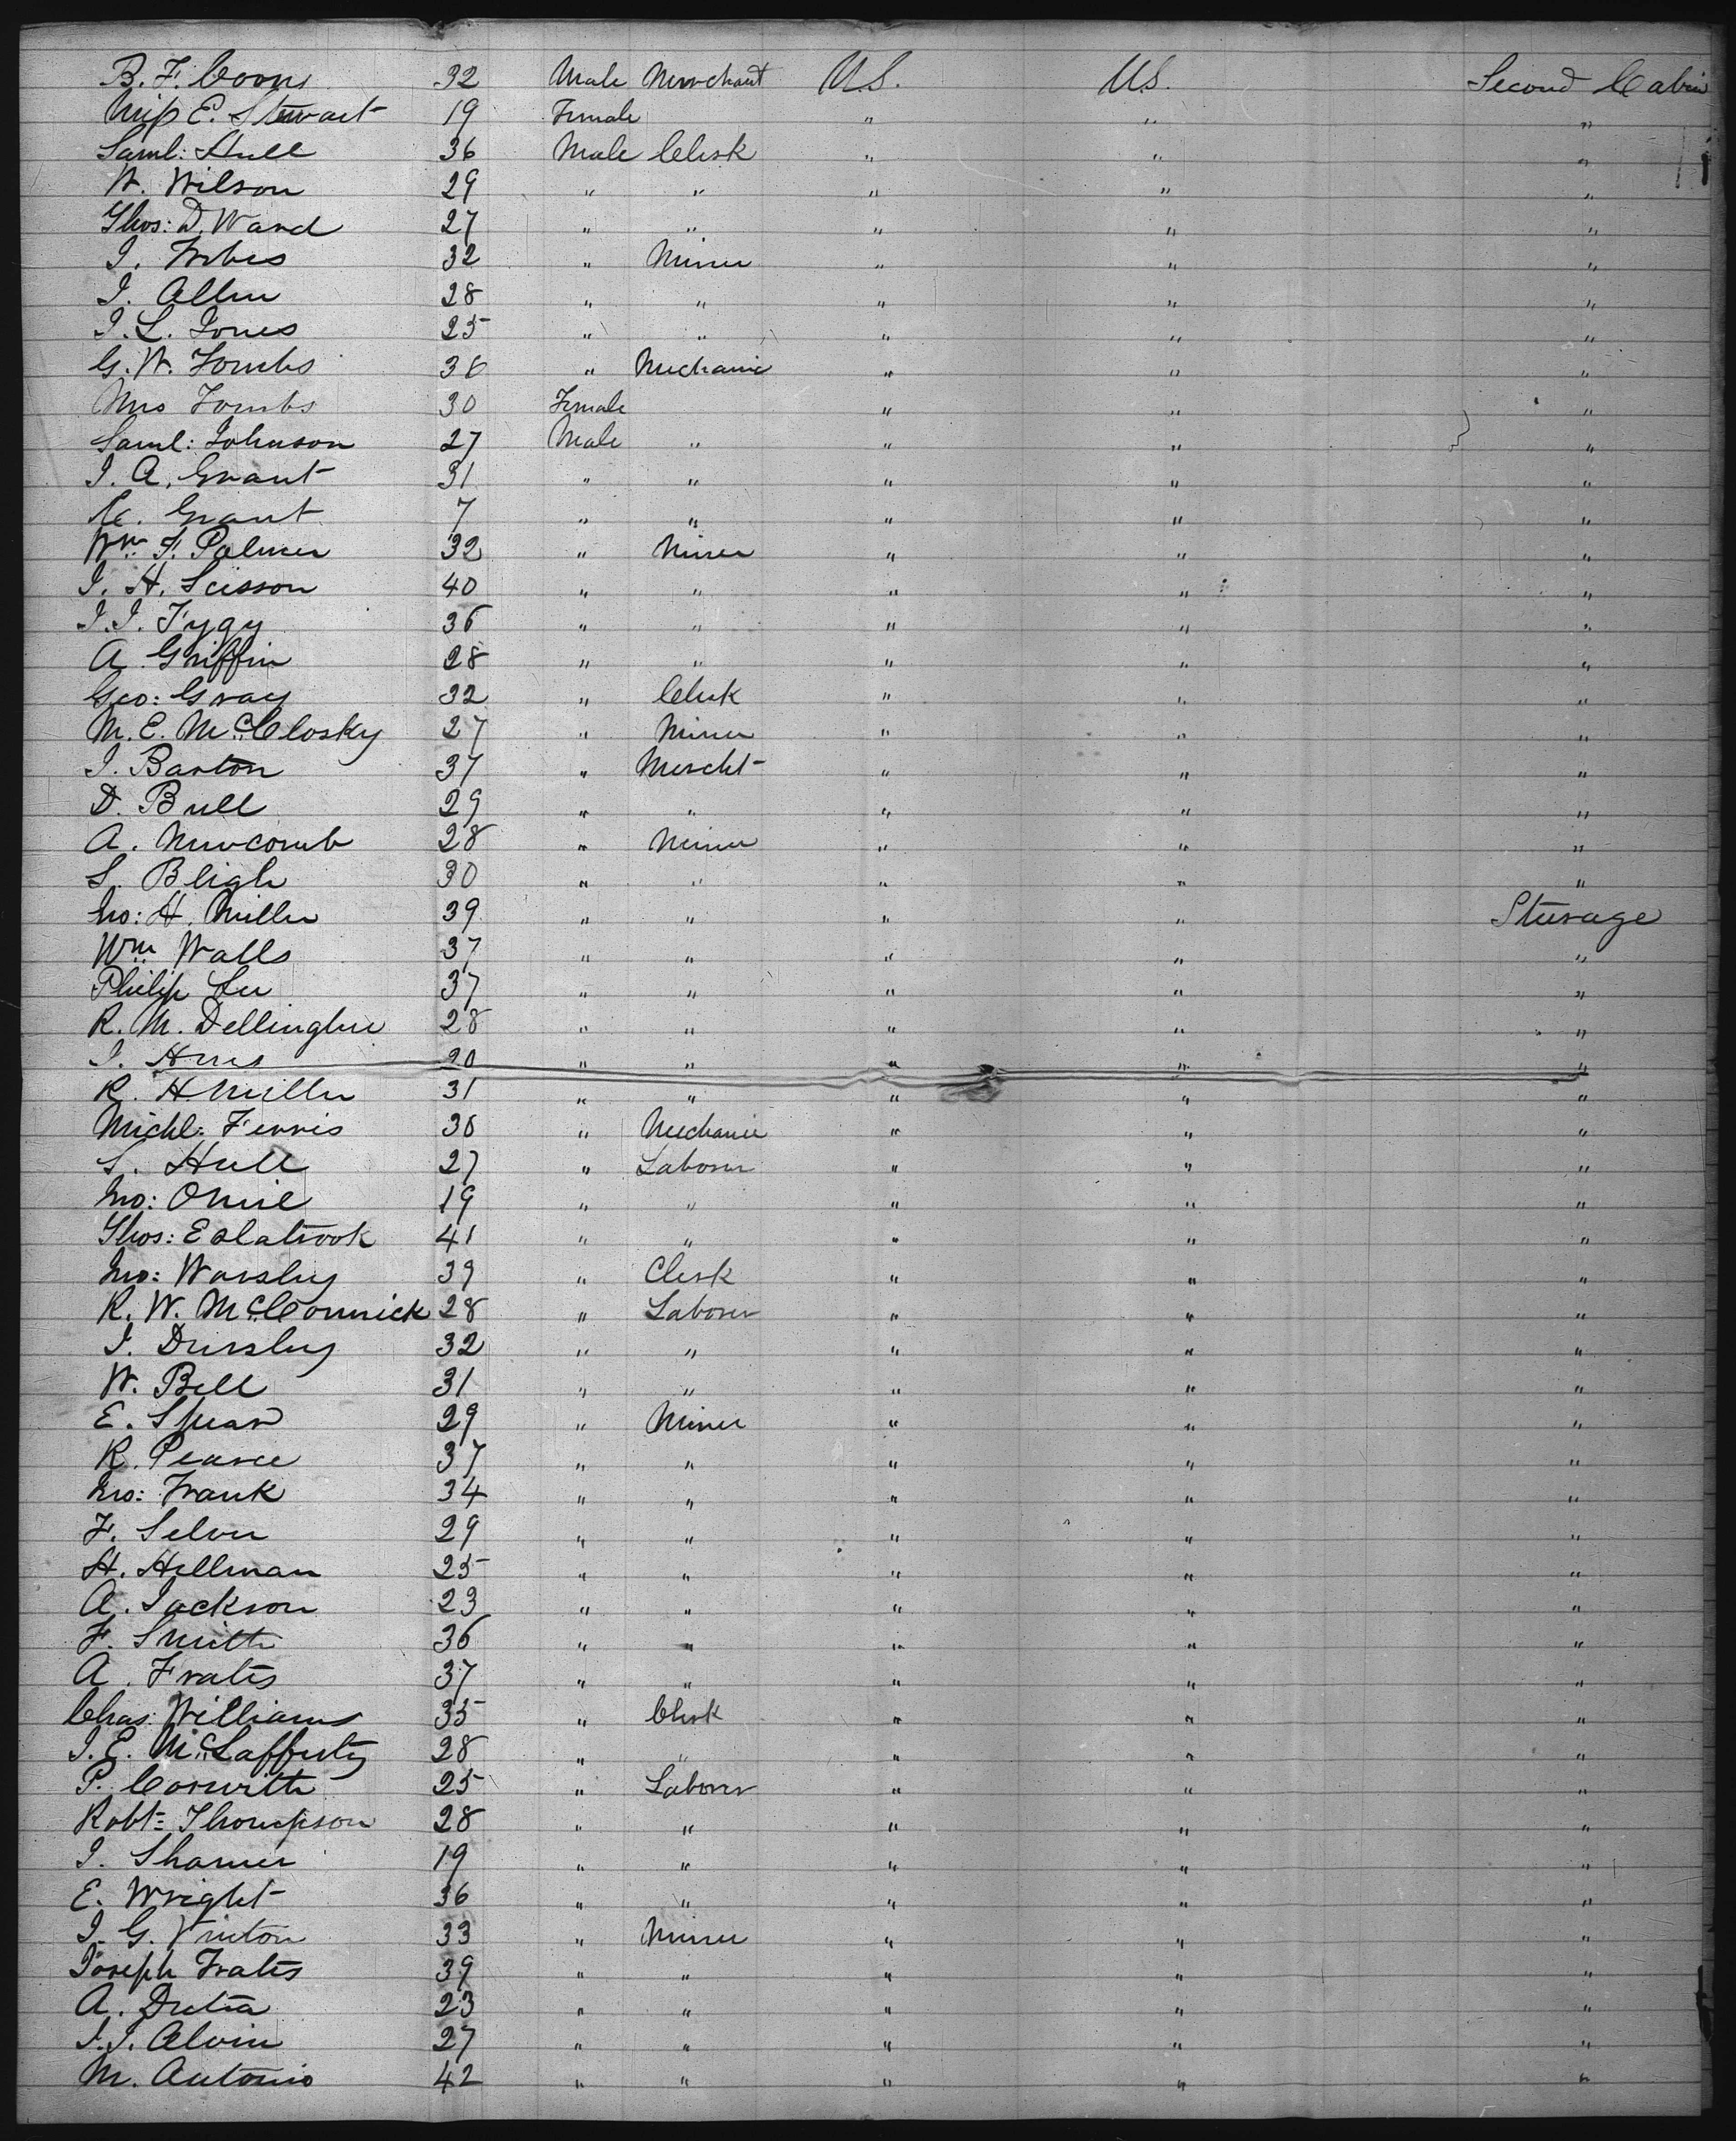 B. F. Coons 32 Male Merchant U.S. U.S. Second Cabin
Miss E. Stewart 19 Female " " "
Saml: Hull 36 Male Clerk " " "
W. Wilson 29 " " " " "
Thos: D. Ward 27 " " " " "
I. Forbes 32 " Miner " " "
I. Allen 28 " " " " "
I. L. Jones 25 " " " " "
G. W. Tombs 36 " Mechanic " " "
Mrs Tombs 30 Female " " "
Saml: Johnson 27 Male " " " "
I. A. Grant 31 " " " " "
C. Grant 7 " " " " "
Wm: F. Palmer 32 " Miner " " "
I. H. Scisson 40 " " " " "
I. I. Tygy 36 " " " " "
A. Griffin 28 " " " " "
Geo: Gray 32 " Clerk " " "
M. E. McClosky 27 " Miner " " "
I. Barton 37 " Mercht " " "
D. Bull 29 " " " " "
A. Newcomb 28 " Miner " " "
S. Bligh 30 " " " " "
Jno: H. Miller 39 " " " " Steerage
Wm Walls 37 " " " " "
Philip Lee 37 " " " " "
R. M. Dellingher 28 " " " " "
I. 20 " " " " "
R. H Miller 31 " " " " "
Michl: Ferris 36 " Mechanic " " "
S. Hull 27 " Laborer " " "
Jno: Oneil 19 " " " " "
Thos: Eslabrook 41 " " " " "
Jno: Worsley 39 " Clerk " " "
R. W. McCormick 28 " Laborer " " "
I. Dursley 32 " " " " "
W. Bell 31 " " " " "
E. Spear 29 " Miner " " "
R. Pearce 37 " " " " "
Jno: Frank 34 " " " " "
F. Selver 29 " " " " "
H. Hellman 25 " " " " "
A. Jackson 23 " " " " "
F. Smith 36 " " " " "
A. Frates 37 " " " " "
Chas: Williams 35 " Clerk " " "
I. E. McLafferty 28 " " " " "
P. Corwith 25 " Laborer " " "
Robt: Thompson 28 " " " " "
I. Shamer 19 " " " " "
E. Wright 36 " " " " "
I. G. Vinton 33 " Miner " " "
Joseph Frates 39 " " " " "
A. Dutra 23 " " " " "
I. I. Alvin 27 " " " " "
M. Antonio 42 " " " " "